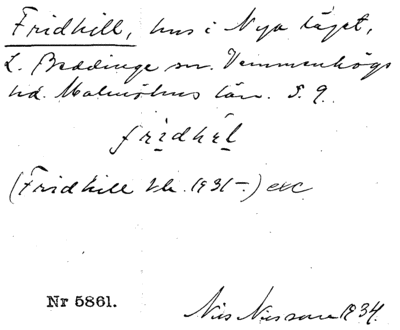 Fridhill, hus i Nya läget,
L. Beddinge sn. Vemmenhögs
hd. Malmöhus län. S. 9.
fridhil
(Fridhill tlk. 1931-) exc
Nr 5861.
Nils Nilsson 1934.